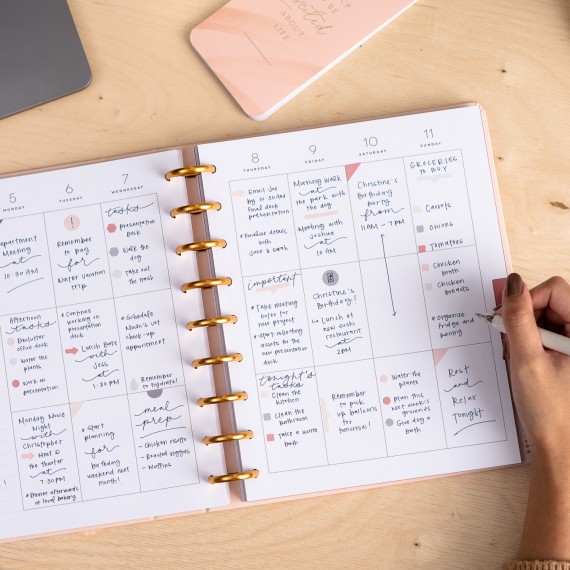 BE
excited
ABOUT
LIFE
5
MONDAY
Department
Meeting
at
10:30AM
Afternoon
tasks
Declutter
office desk
Water the
plants
Work on
presentation
Monday Movie
Night
with
Christopher
Meet @
the theater
at
7:30PM
*Dinner afterwards
at local bakery
6
TUESDAY
!
Remember
to pay
for
Winter vacation
trip
*Continue
working on
presentation
deck
Lunch Date
with
Jess
at
1:30PM
*Start
planning
for
birthday
weekend next
month!
7
WEDNESDAY
tasks
presentation
deck
Walk the
dog
Take out the
trash
*Schedule
Mochi's vet
check-up
appointment
Remember
to hydrate!
meal
prep
- Chicken risotto
- Roasted veggies
- Muffins
8
THURSDAY
Email Joe
by 10:30AM
final deck
presentation
*Finalize details
with
Jane & Sarah
important
*Take meeting
notes for
new project
*Start collecting
assets for the
new presentation
deck
tonight's
tasks
Clean the
kitchen
Clean the
bathroom
Take a warm
bath
9
FRIDAY
Morning Walk
at the park
with
the dog
Meeting with
Joshua
at
10AM
Christine's
Birthday!
Lunch at
new sushi
restaurant
at
2PM
Remember
to pick
up balloons
for
tomorrow!
10
SATURDAY
Christine's
Birthday
party
from
11AM - 7PM
Water the
plants
Plan this
Next week's
groceries
Give dog a
bath
11
SUNDAY
GROCERIES
TO BUY
Carrots
Onions
Tomatoes
Chicken
broth
Chicken
breasts
*Organize
fridge and
pantry
Rest
and
Relax
Tonight